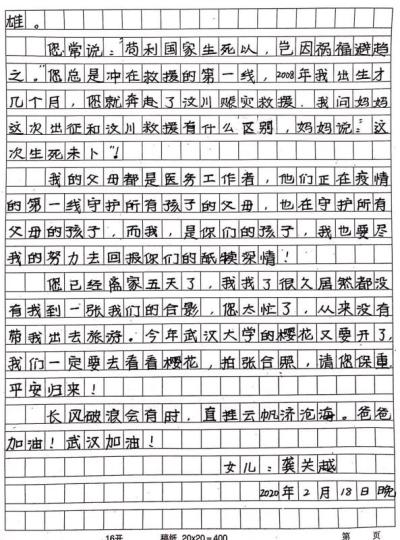 雄。
您常说："苟利国家生死以,岂因祸福避趋
之。"您总是冲在救援的第一线,2008年我出生才
几个月,您就奔赴了汶川赈灾救援。我问妈妈
这次出征和汶川救援有什么区别,妈妈说："这
次生死未卜"!
我的父母都是医务工作者,他们正在疫情
的第一线守护所有孩子的父母,也在守护所有
父母的孩子,而我,是你们的孩子,我也要尽
我的努力去回报你们的舐犊深情!
您已经离家五天了,我找了很久居然都没
有找到一张我们的合影,您太忙了,从来没有
带我出去旅游。今年武汉大学的樱花又要开了,
我们一定要去看看樱花,拍张合照,请您保重,
平安归来!
长风破浪会有时,直挂云帆济沧海。爸爸
加油!武汉加油!
女儿：龚关越
2020年2月18日晚
16开 稿纸 20×20=400 第 页